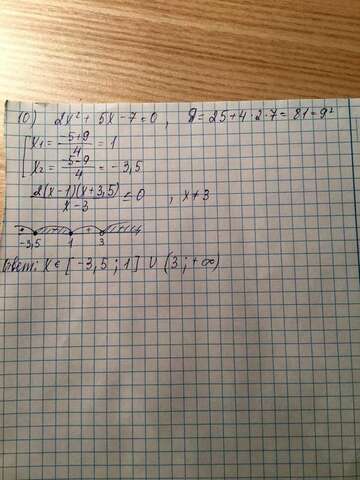 10) 2x² + 5x - 7 = 0, D = 25 + 4·2·7 = 81 = 9²
[ x₁ = (-5+9)/4 = 1
[ x₂ = (-5-9)/4 = -3,5
2(x-1)(x+3,5)/(x-3) ≤ 0, x ≠ 3
-3,5 1 3
Ответ: x ∈ [-3,5; 1] ∪ (3; +∞)